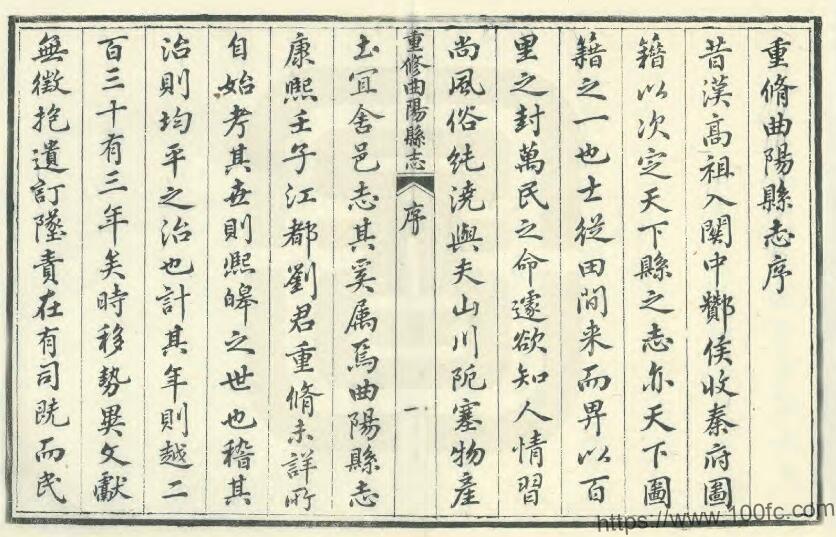 重脩曲陽縣志序
昔漢高祖入關中酇侯收秦府圖
籍以次定天下縣之志亦天下圖
籍之一也士從田間来而畀以百
里之封萬民之命遽欲知人情習
尚風俗純澆與夫山川阨塞物產
重修曲陽縣志
序
一
土宜舍邑志其奚属焉曲陽縣志
康熙壬子江都劉君重脩未詳所
自始考其世則熙皞之世也稽其
治則均平之治也計其年則越二
百三十有三年矣時移勢異文獻
無徵抱遺訂墜責在有司旣而民
https://www.100fc.com